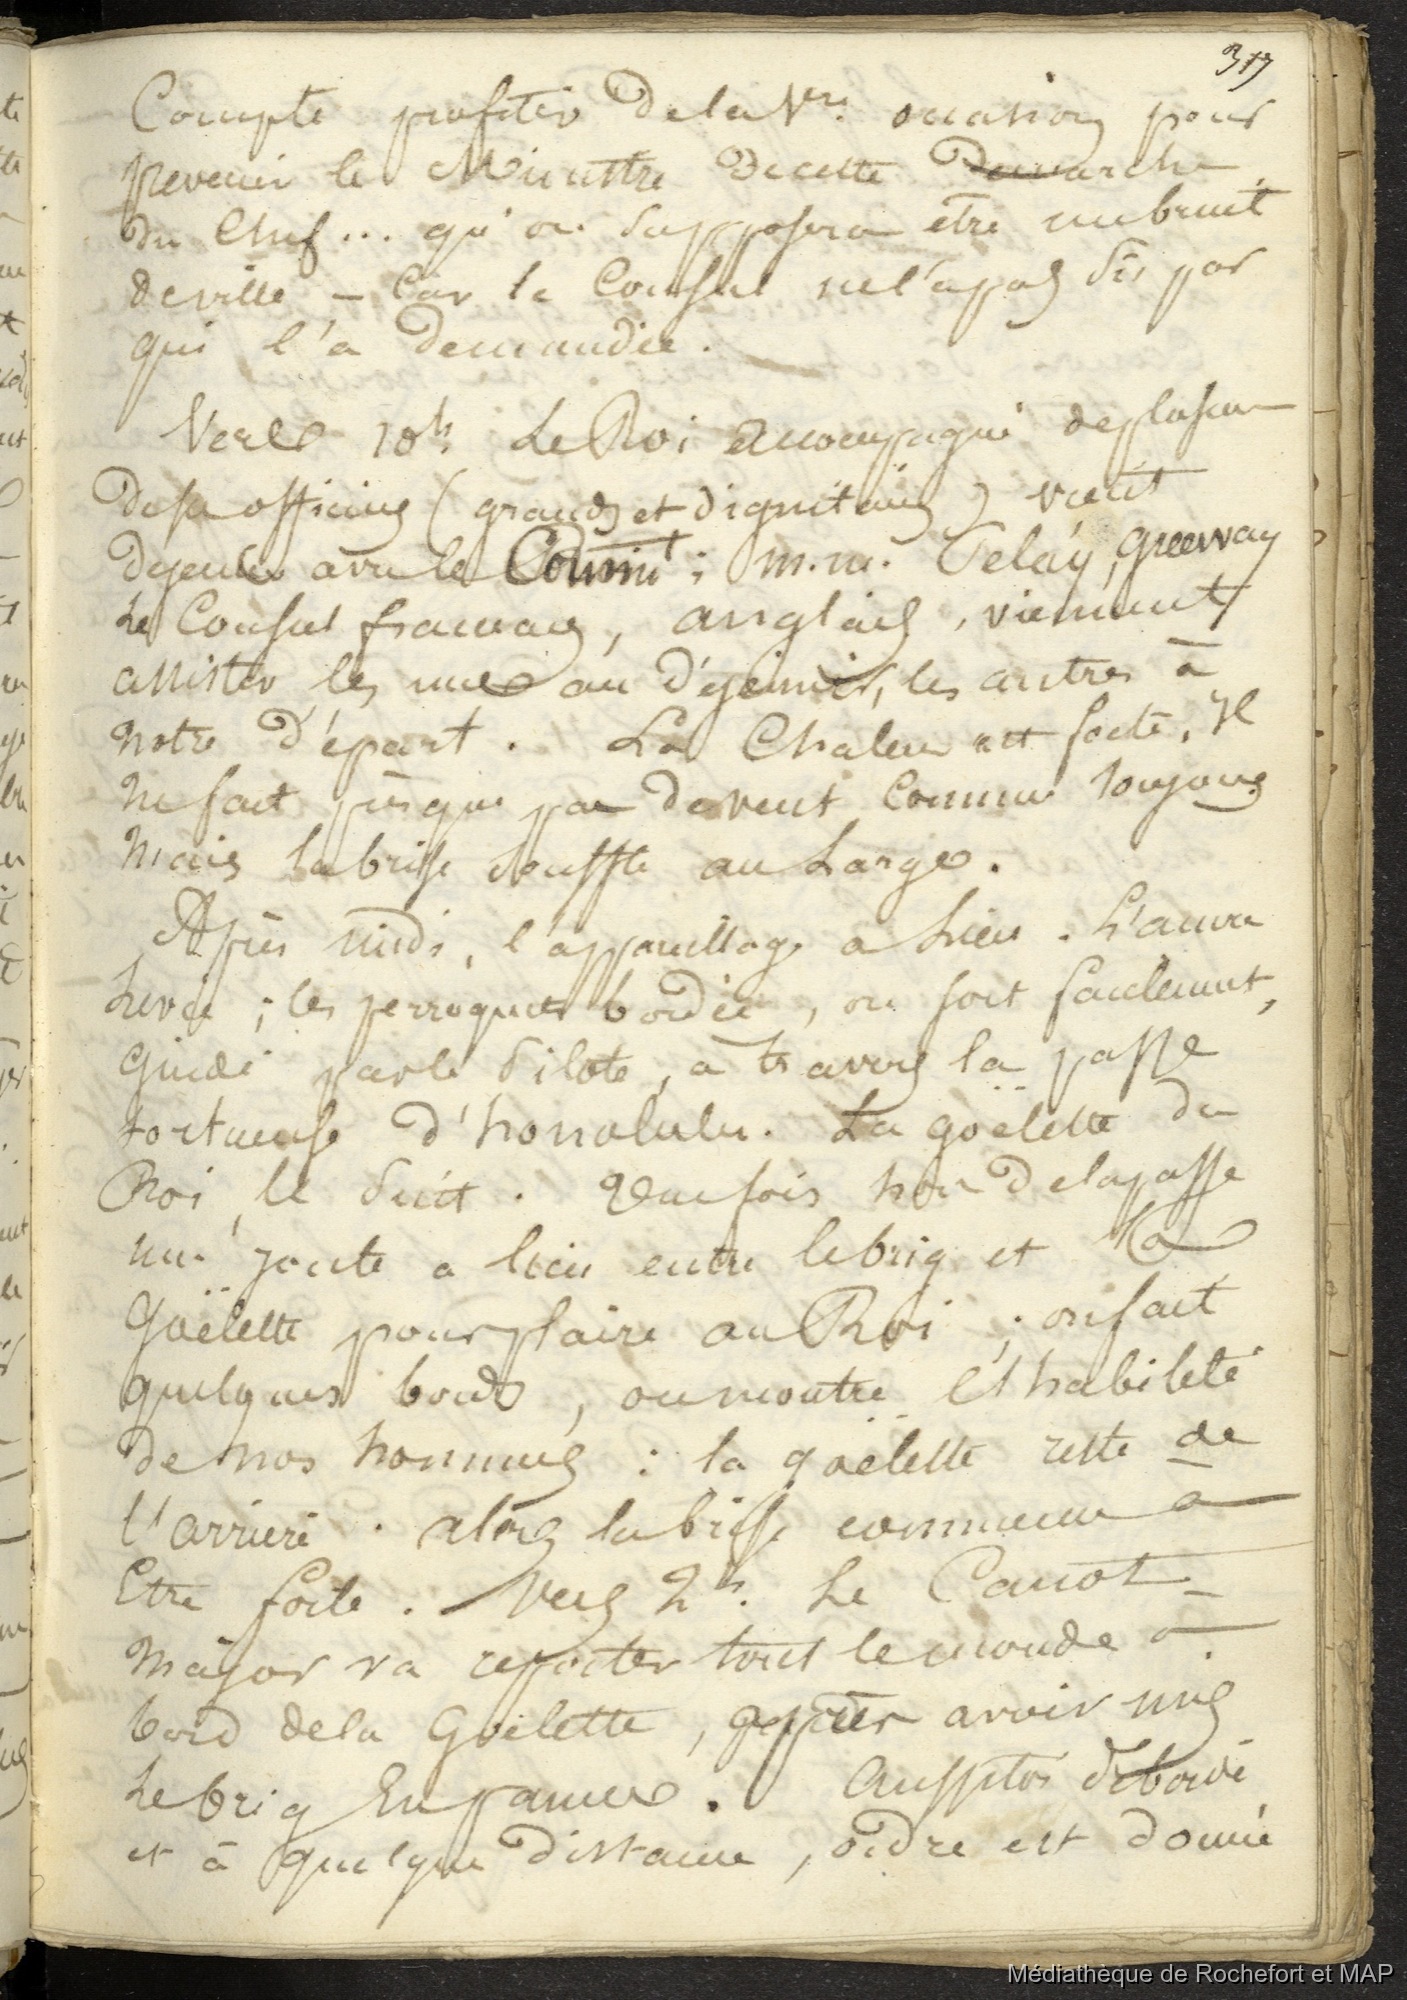 317
Compte profiter de la 1ere occasion pour
prevenir le Ministre de cette demarche
du Chef... qu'on supposera etre un bruit
de ville – Car le Consul ne l'a pas sû par
qui l'a demandée.
Vers 10h. Le Roi accompagné de plusieurs
de ses officiers (grands et dignitaires) vient
dejeuner avec le Commt; m.m. Pelay, Greeway
Le Consul français, anglais, viennent
assister les uns au déjeuner, les autres à
notre départ. La Chaleur est forte. Il
ne fait presque pas de vent comme toujours
mais la brise souffle au Large.
Après midi, l'appareillage a Lieu. L'ancre
Levée; les perroquets bordés, on sort facilement,
guidé par le Pilote, a travers la passe
tortueuse d'honolulu. La goëlette du
Roi, le suit. Une fois hors de la passe
une joute a lieu entre le brig et La
Goëlette pour plaire au Roi; on fait
quelques bords, on montre l'habileté
de nos hommes: la goëlette reste de
l'arriere. alors la brise commence a
Etre forte. – Vers 2h. Le Canot-
major va reporter tout le monde a
bord de la Goëlette, apres avoir mis
Le brig En panne. Aussitot débordé
et à quelque distance, ordre est donné
Médiathèque de Rochefort et MAP